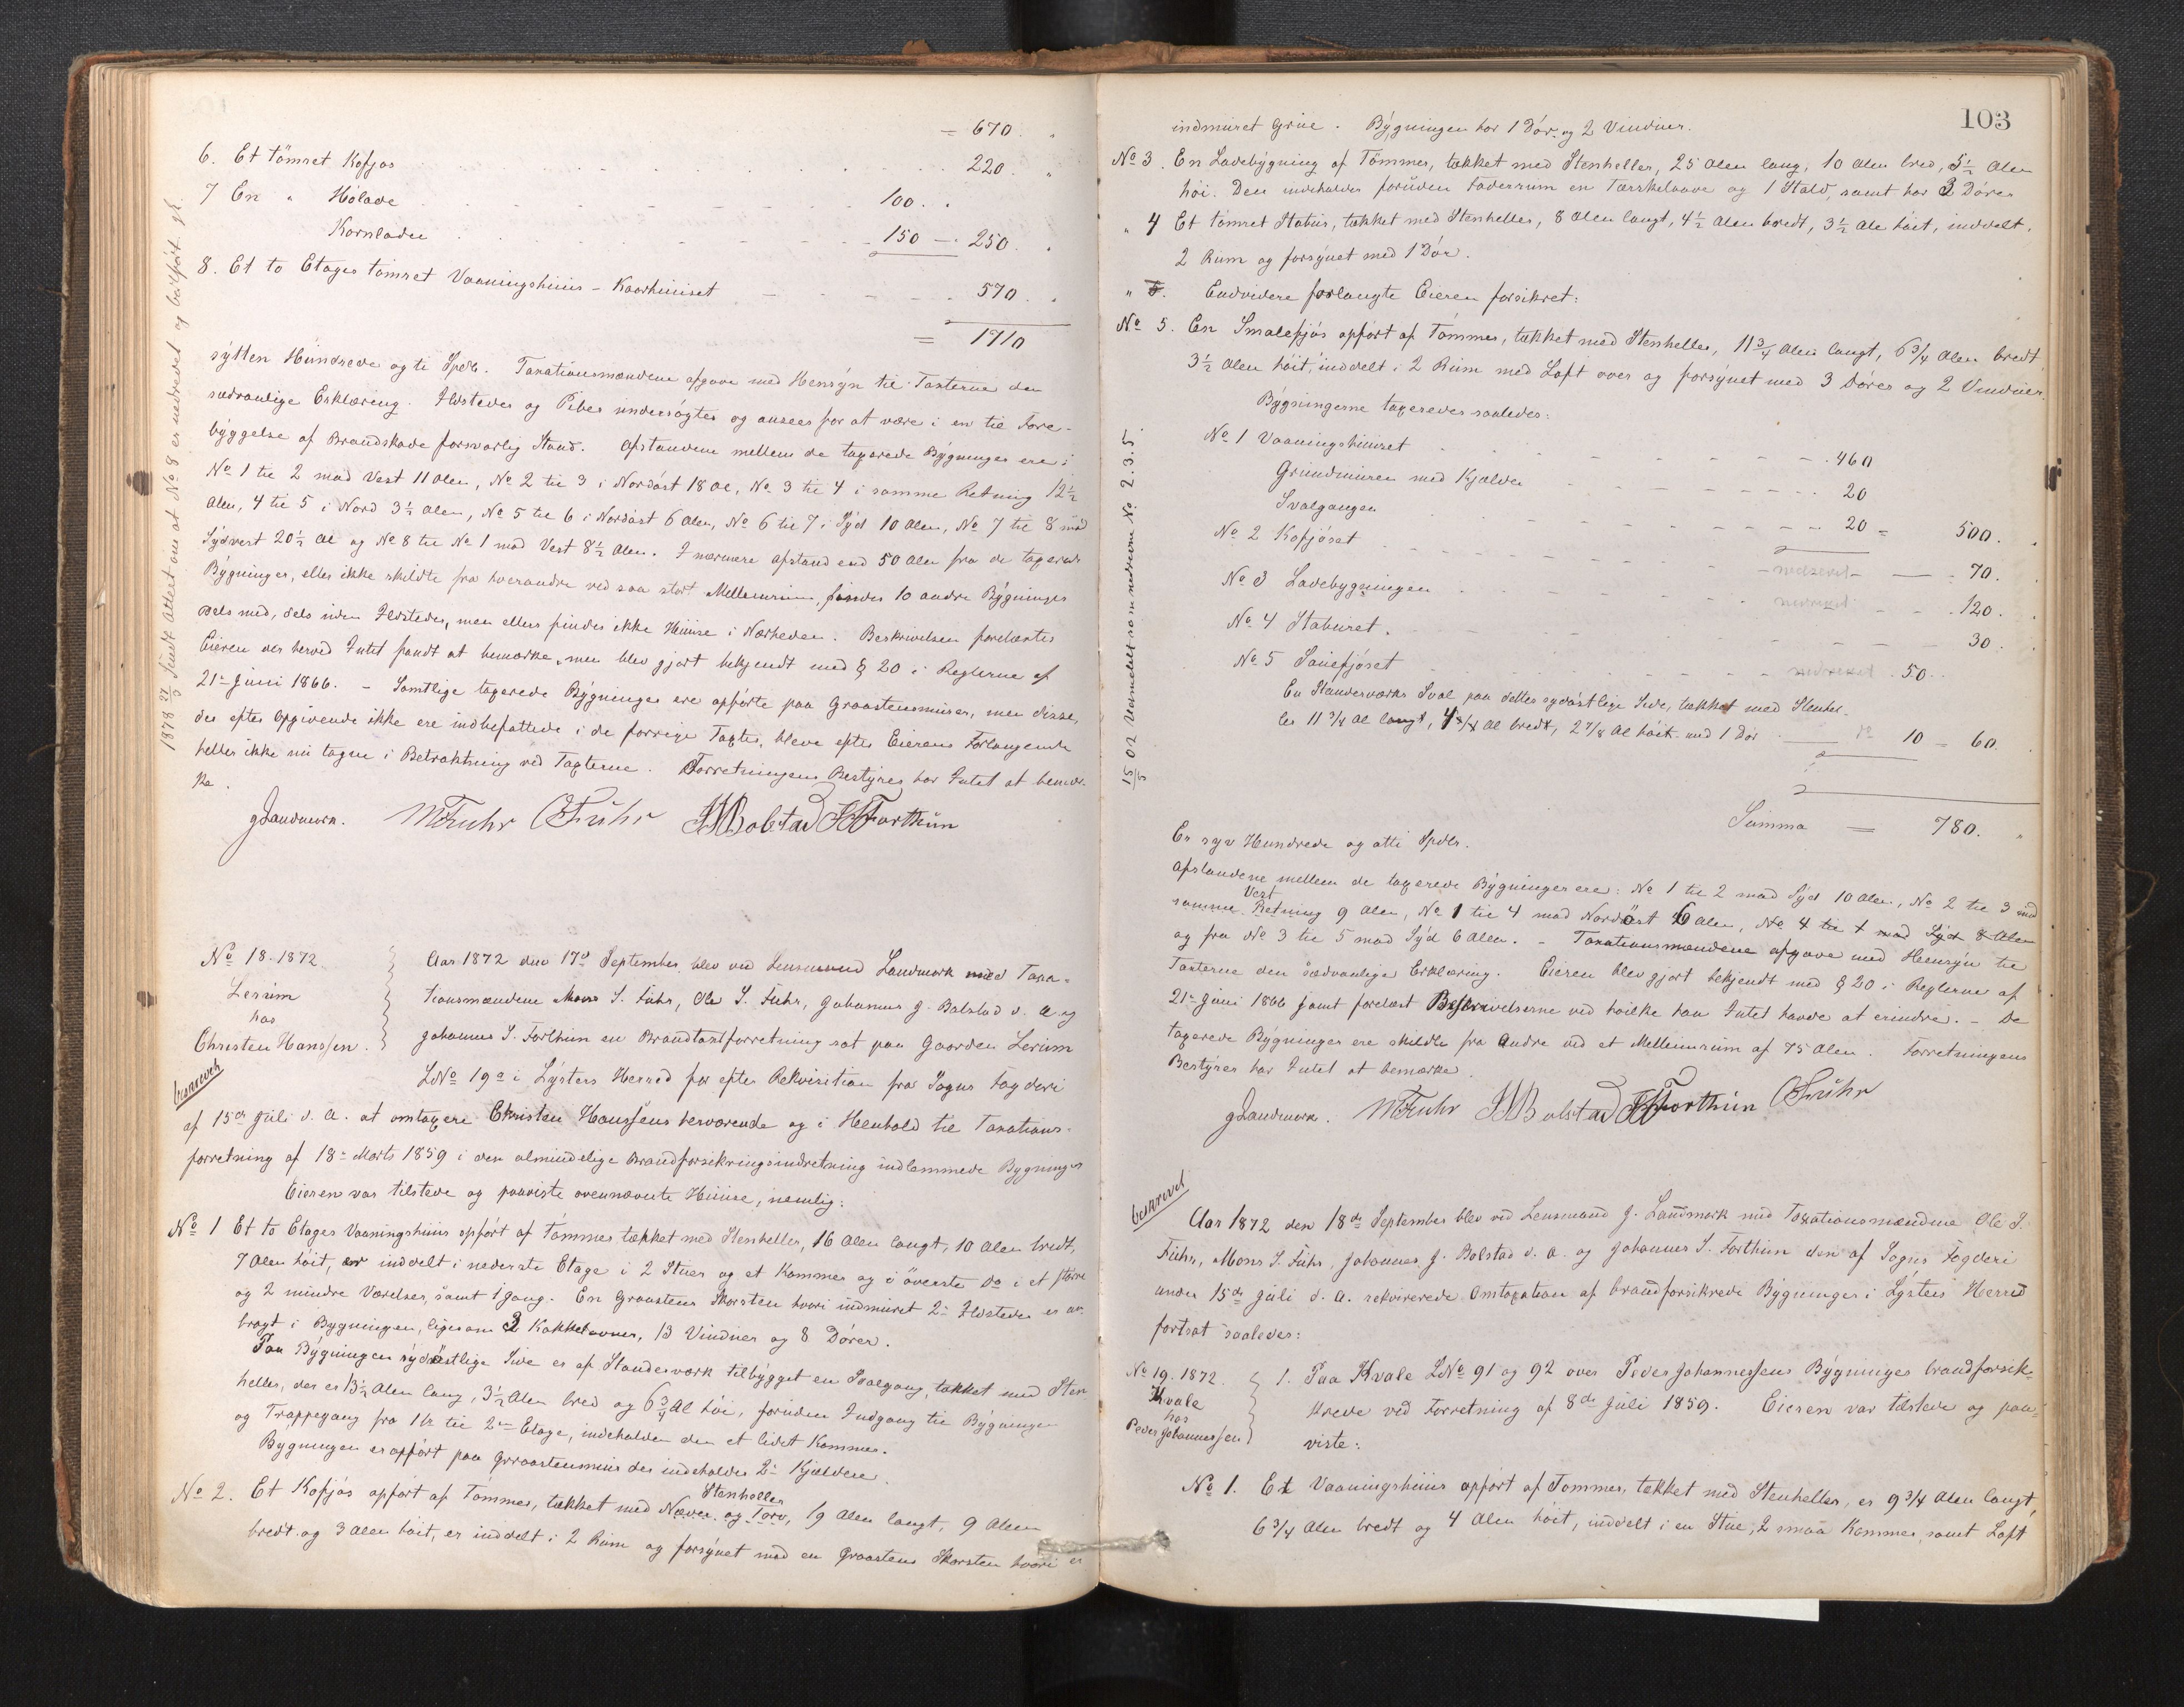 = 670. "
6. Et tömret Kofjos . . . 220. "
7 En " Hölade . . . 100. "
Kornlade . . . 150 — 250. "
8. Et to Etages tömret Vaaningshuus - Kaarhuuset — 570. "
= 1710
sÿtten Hundrede og ti Spdlr. Taxationsmændene afgave med Hensÿn til Taxterne den
sædvanlige Erklæring. Ildsteder og Piber undersögtes og ansees for at være i en til Fore-
bÿggelse af Brandskade forsvarlig Stand. Afstandene mellem de taxerede Bÿgninger ere:
No 1 til 2 mod Vest 11 Alen, No 2 til 3 i Nordöst 18 Al, No 3 til 4 i samme Retning 12½
Alen, 4 til 5 i Nord 3½ Alen, No 5 til 6 i Nordöst 6 Alen, No 6 til 7 i Sÿd 10 Alen, No 7 til 8 mod
Sÿdvest 20½ Al og No 8 til No 1 mod Vest 8½ Alen. I nærmere Afstand end 50 Alen fra de taxerede
Bÿgninger, eller ikke skildte fra hverandre ved saa stort Mellemrum, findes 10 andre Bÿgninger
dels med, dels uden Ildsteder, men ellers findes ikke Huuse i Nærheden. Beskrivelsen forelæstes
Eieren der herved Intet fandt at bemærke, men blev gjort bekjendt med § 20 i Reglerne af
21de Juni 1866. - Samtlige taxerede Bÿgninger ere opförte paa Graastensmurer, men disse,
der efter Opgivende ikke ere indbefattede i de forrige Taxter, bleve efter Eierens Forlangende
heller ikke nu tagen i Betraktning ved Taxterne. Forretningens Bestÿrer har Intet at bemær-
ke.
1878 27/5 attest om at No 8 er nedrevet og bortfört
GLandmark. MFuhr OFuhr JJBolstad JSForthun
No 18. 1872.
Lerum
hos
Christen Hanssen.
beskrevet
Aar 1872 den 17de September blev ved Lensmand Landmark med Taxa-
tionsmændene Mons S. Fuhr, Ole S. Fuhr, Johannes J. Bolstad d. A. og
Johannes S. Forthun en Brandtaxtforretning sat paa Gaarden Lerum
LNo 19a i Lÿsters Herred for efter Rekvisition fra Sogns Fogderi
af 15de Juli d. A. at omtaxere Christen Hanssens herværende og i Henhold til Taxations-
forretning af 18de Marts 1859 i den almindelige Brandforsikringsindretning indlemmede Bygninger
Eieren var tilstede og paaviste ovennævnte Huuse, nemlig:
No 1 Et to Etages Vaaningshuus opfört af Tömmer tækket med Stenheller, 16 Alen langt, 10 Alen bredt,
7 Alen höit, er inddelt i nederste Etage i 2 Stuer og et Kammer og i överste Do i et större
og 2 mindre Værelser, samt 1 gang. En Graastens Skorsten hvori indmuret 2de Ildsteder er an-
bragt i Bygningen, ligesom 2 Kakkelovner, 13 Vinduer og 8 Dörer.
Paa Bÿgningen sÿdöstlige Side er af Standerværk tilbÿgget en Svalgang, tækket med Sten
heller, der er 13½ Alen lang, 3½ Alen bred og 6¾ Al höi, foruden Indgang til Bÿgningen
og Trappegang fra 1ste til 2den Etage, indeholder den et lidet Kammer.
Bygningen er opfört paa Graastensmur der indeholder 2de Kjældere.
Stenheller
No 2. Et Kofjös opfört af Tömmer, tækket med Næver og Torv, 19 Alen langt, 9 Alen
bredt og 3 Alen höit, er inddelt i 2 Rum og forsÿnet med en Graastens Skorsten hvori er
103
indmuret Grue. Bÿgningen har 1 Dör og 2 Vinduer.
No 3. En Ladebÿgning af Tömmer, tækket med Stenheller, 25 Alen lang, 10 Alen bred, 5½ Alen
höi. Den indeholder foruden Foderrum en Tærskelaave og 1 Stald, samt har 3 Dörer
" 4 Et tömret Stabur, tækket med Stenheller, 8 Alen langt, 4½ Alen bredt, 3½ Ale höit, inddelt,
2 Rum og forsÿnet med 1 Dör.
" 5. Endvidere forlangte Eieren forsikret:
No 5. En Smalefjös opfört af Tömmer, tækket med Stenheller, 11¾ Alen langt, 6¾ Alen bredt
3½ Alen höit, inddelt i 2 Rum med Loft over og forsÿnet med 3 Dörer og 2 Vinduer.
Bÿgningerne taxeredes saaledes:
No 1 Vaaningshuuset . . . 460
Grundmuren med Kjelder . . . 20
Svalgangen . . . 20 = 500. "
No 2 Kofjöset . . . nedrevet — 70. "
No 3 Ladebygningen . . . nedrevet - 120. "
No 4 Staburet. . . . 30. "
No 5 Sauefjöset . . . nedrevet 50. "
En Standerværks Sval paa dettes sydöstlige Side, tækket med Stenhel-
ler 11¾ Al langt, 4¾ Al bredt, 2⅞ Al höit med 1 Dör — do 10 = 60. "
Summa = 780. "
15/5 02 No 2. 3. 5.
Er syv Hundrede og otti Spdlr.
Afstandene mellem de taxerede Bÿgninger ere: No 1 til 2 mod Sÿd 10 Alen, No 2 til 3 mod
Vest
samme Retning 9 Alen, No 1 til 4 mod Nordöst 6 Alen, No 4 til 1 mod Sÿd 8 Alen
og fra No 3 til 5 mod Sÿd 6 Alen. - Taxationsmændene afgave med Hensÿn til
Taxterne den sædvanlige Erklæring. Eieren blev gjort bekjendt med § 20 i Reglerne af
21de Juni 1866 samt forelæst Beskrivelserne ved hvilke han Intet havde at erindre. - De
taxerede Bÿgninger ere skildte fra Andre ved et Mellemrum af 75 Alen. Forretningens
Bestÿrer har Intet at bemærke.
GLandmark. MFuhr JJBolstad JSForthun OFuhr
beskrevet
Aar 1872 den 18de September blev ved Lensmand J. Landmark med Taxationsmændene Ole S.
Fuhr, Mons S. Fuhr, Johannes J. Bolstad d. A. og Johannes S. Forthun den af Sogns Fogderi
under 15de Juli d. A. rekvirerede Omtaxation af brandforsikrede Bÿgninger i Lÿsters Herred
fortsat saaledes:
No 19. 1872.
Kvale
hos
Peder Johannessen
1. Paa Kvale LNo 91 og 92 over Peder Johannessens Bÿgninger brandforsik-
krede ved Forretning af 8de Juli 1859. Eieren var tilstede og paa-
viste:
No 1. Et Vaaningshuus opfört af Tömmer, tækket med Stenheller, er 9¾ Alen langt,
6¾ Alen bredt og 4 Alen höit, inddelt i en Stue, 2 smaa Kammer, samt Loft